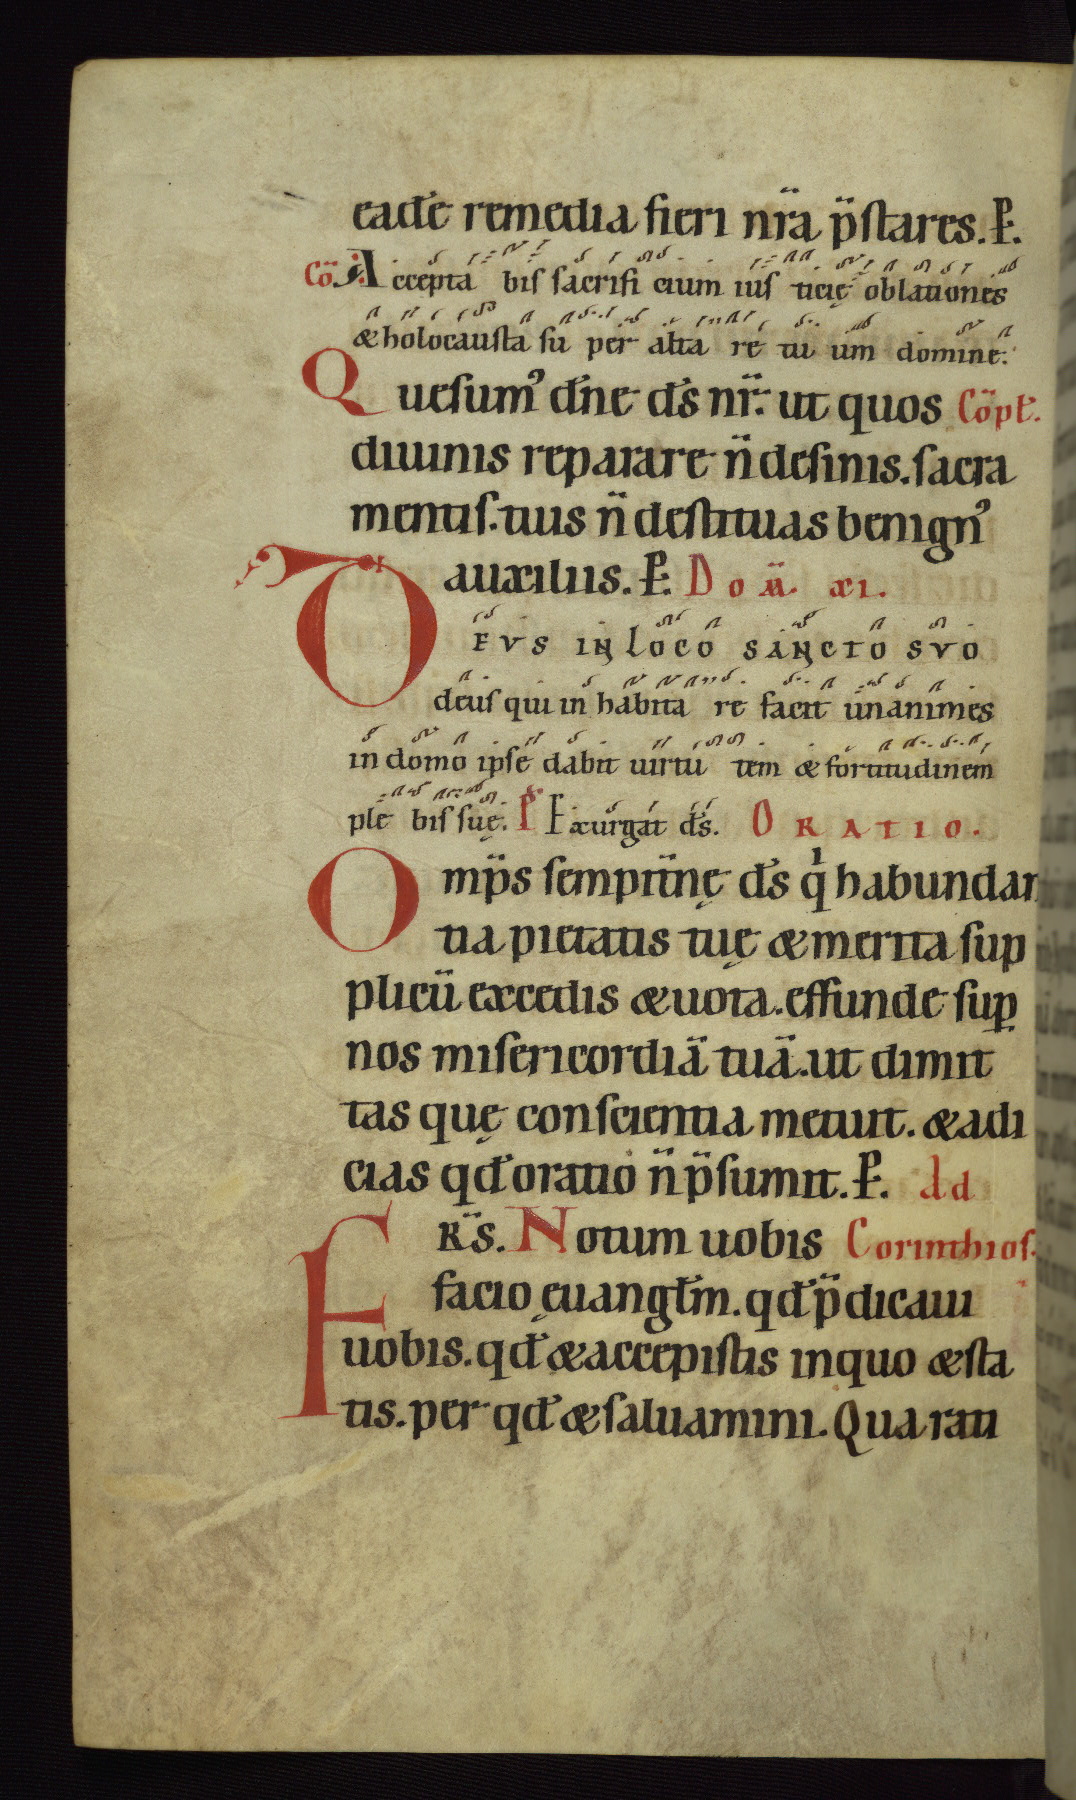 eadē remedia fieri nr̄a p̄stares. P̄.
Cō. Accepta bis sacrifi cium ius ticię oblationes
& holocausta su per alta re tu um domine.
Quesumꝰ dn̄e ds̄ nr̄. ut quos Cōpt̄.
diuinis reparare n̄ desinis. sacra
mentis. tuis n̄ destituas benignꝰ
auxiliis. P̄. Dom̄. xi.
DEVS IN LOCO SANCTO SVO
deus qui in habita re facit unanimes
in domo ipse dabit uirtu tem & fortitudinem
ple bis suę. P̄s Exurgat ds̄. ORATIO.
Omp̄s sempitn̄ę ds̄ qi habundan
tia pietatis tuę & merita sup
plicū excedis & uota. effunde sup̱
nos misericordiā tuā. ut dimit
tas quę conscientia metuit. & adi
cias qd̄ oratio n̄ p̄sumit. P̄. Ad
FRS̄. Notum uobis Corinthios.
facio ęuangl̄m. qd̄ p̄dicaui
uobis. qd̄ & accepistis in quo & sta
tis. per qd̄ & saluamini. Qua rati